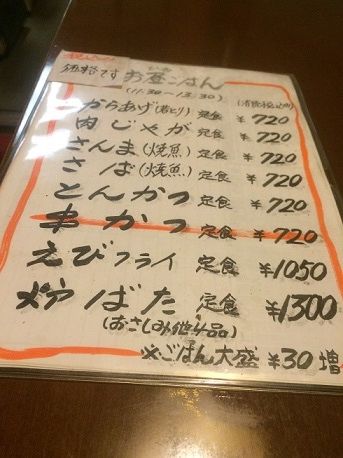 税込み
価格です
お昼ごはん
(11:30~13:30)
(消費税込み)
からあげ(若ドリ) 定食 ¥720
肉じゃが 定食 ¥720
さんま(焼魚) 定食 ¥720
さば(焼魚) 定食 ¥720
とんかつ 定食 ¥720
串かつ 定食 ¥720
えびフライ 定食 ¥1050
ばた 定食 ¥1300
(おさしみ他4品)
※ごはん大盛 ¥30増